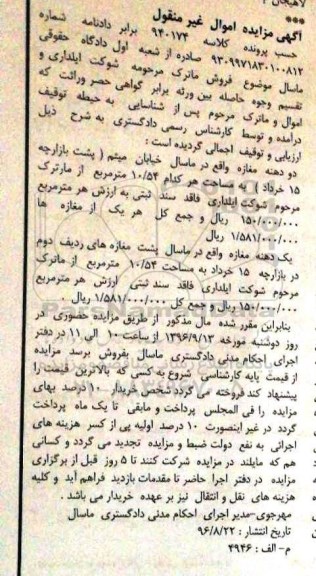 لاهیجان
***
آگهی مزایده اموال غیر منقول
حسب پرونده کلاسه ۹۴۰۱۷۴ برابر دادنامه شماره
۹۳۰۹۹۷۱۸۳۰۱۰۰۸۱۲ صادره از شعبه اول دادگاه حقوقی
ماسال موضوع فروش ماترک مرحومه شوکت ایلداری و
تقسیم وجوه حاصله بین ورثه برابر گواهی حصر وراثت که
اموال و ماترک مرحوم پس از شناسایی به حیطه توقیف
درآمده و توسط کارشناس رسمی دادگستری به شرح ذیل
ارزیابی و توقیف اجمالی گردیده است :
دو دهنه مغازه واقع در ماسال خیابان میثم ( پشت بازارچه
۱۵ خرداد ) به مساحت هر کدام ۱۰/۵۴ مترمربع از ماترک
مرحوم شوکت ایلداری فاقد سند ثبتی به ارزش هر مترمربع
۱۵۰/۰۰۰/۰۰۰ ریال و جمع کل هر یک از مغازه ها
۱/۵۸۱/۰۰۰/۰۰۰ ریال
یک دهنه مغازه واقع در ماسال پشت مغازه های ردیف دوم
در بازارچه ۱۵ خرداد به مساحت ۱۰/۵۴ مترمربع از ماترک
مرحوم شوکت ایلداری فاقد سند ثبتی ارزش هر مترمربع
۱۵۰/۰۰۰/۰۰۰ ریال و جمع کل ۱/۵۸۱/۰۰۰/۰۰۰ ریال
بنابراین مقرر شده مال مذکور از طریق مزایده حضوری در
روز دوشنبه مورخه ۱۳۹۶/۹/۱۳ از ساعت ۱۰ الی ۱۱ در دفتر
اجرای احکام مدنی دادگستری ماسال بفروش برسد مزایده
از قیمت پایه کارشناسی شروع به کسی که بالاترین قیمت را
پیشنهاد کند فروخته می گردد شخص خریدار ۱۰ درصد بهای
مزایده را فی المجلس پرداخت و مابقی تا یک ماه پرداخت
گردد در غیر اینصورت ۱۰ درصد اولیه پی از کسر هزینه های
اجرائی به نفع دولت ضبط و مزایده تجدید می گردد و کسانی
هم که مایلند در مزایده شرکت کنند تا ۵ روز قبل از برگزاری
مزایده در دفتر اجرا حاضر تا مقدمات بازدید فراهم آید و کلیه
هزینه های نقل و انتقال نیز بر عهده خریدار می باشد .
مهرجوی-مدیر اجرای احکام مدنی دادگستری ماسال
تاریخ انتشار : ۹۶/۸/۲۲
م - الف : ۴۹۴۶